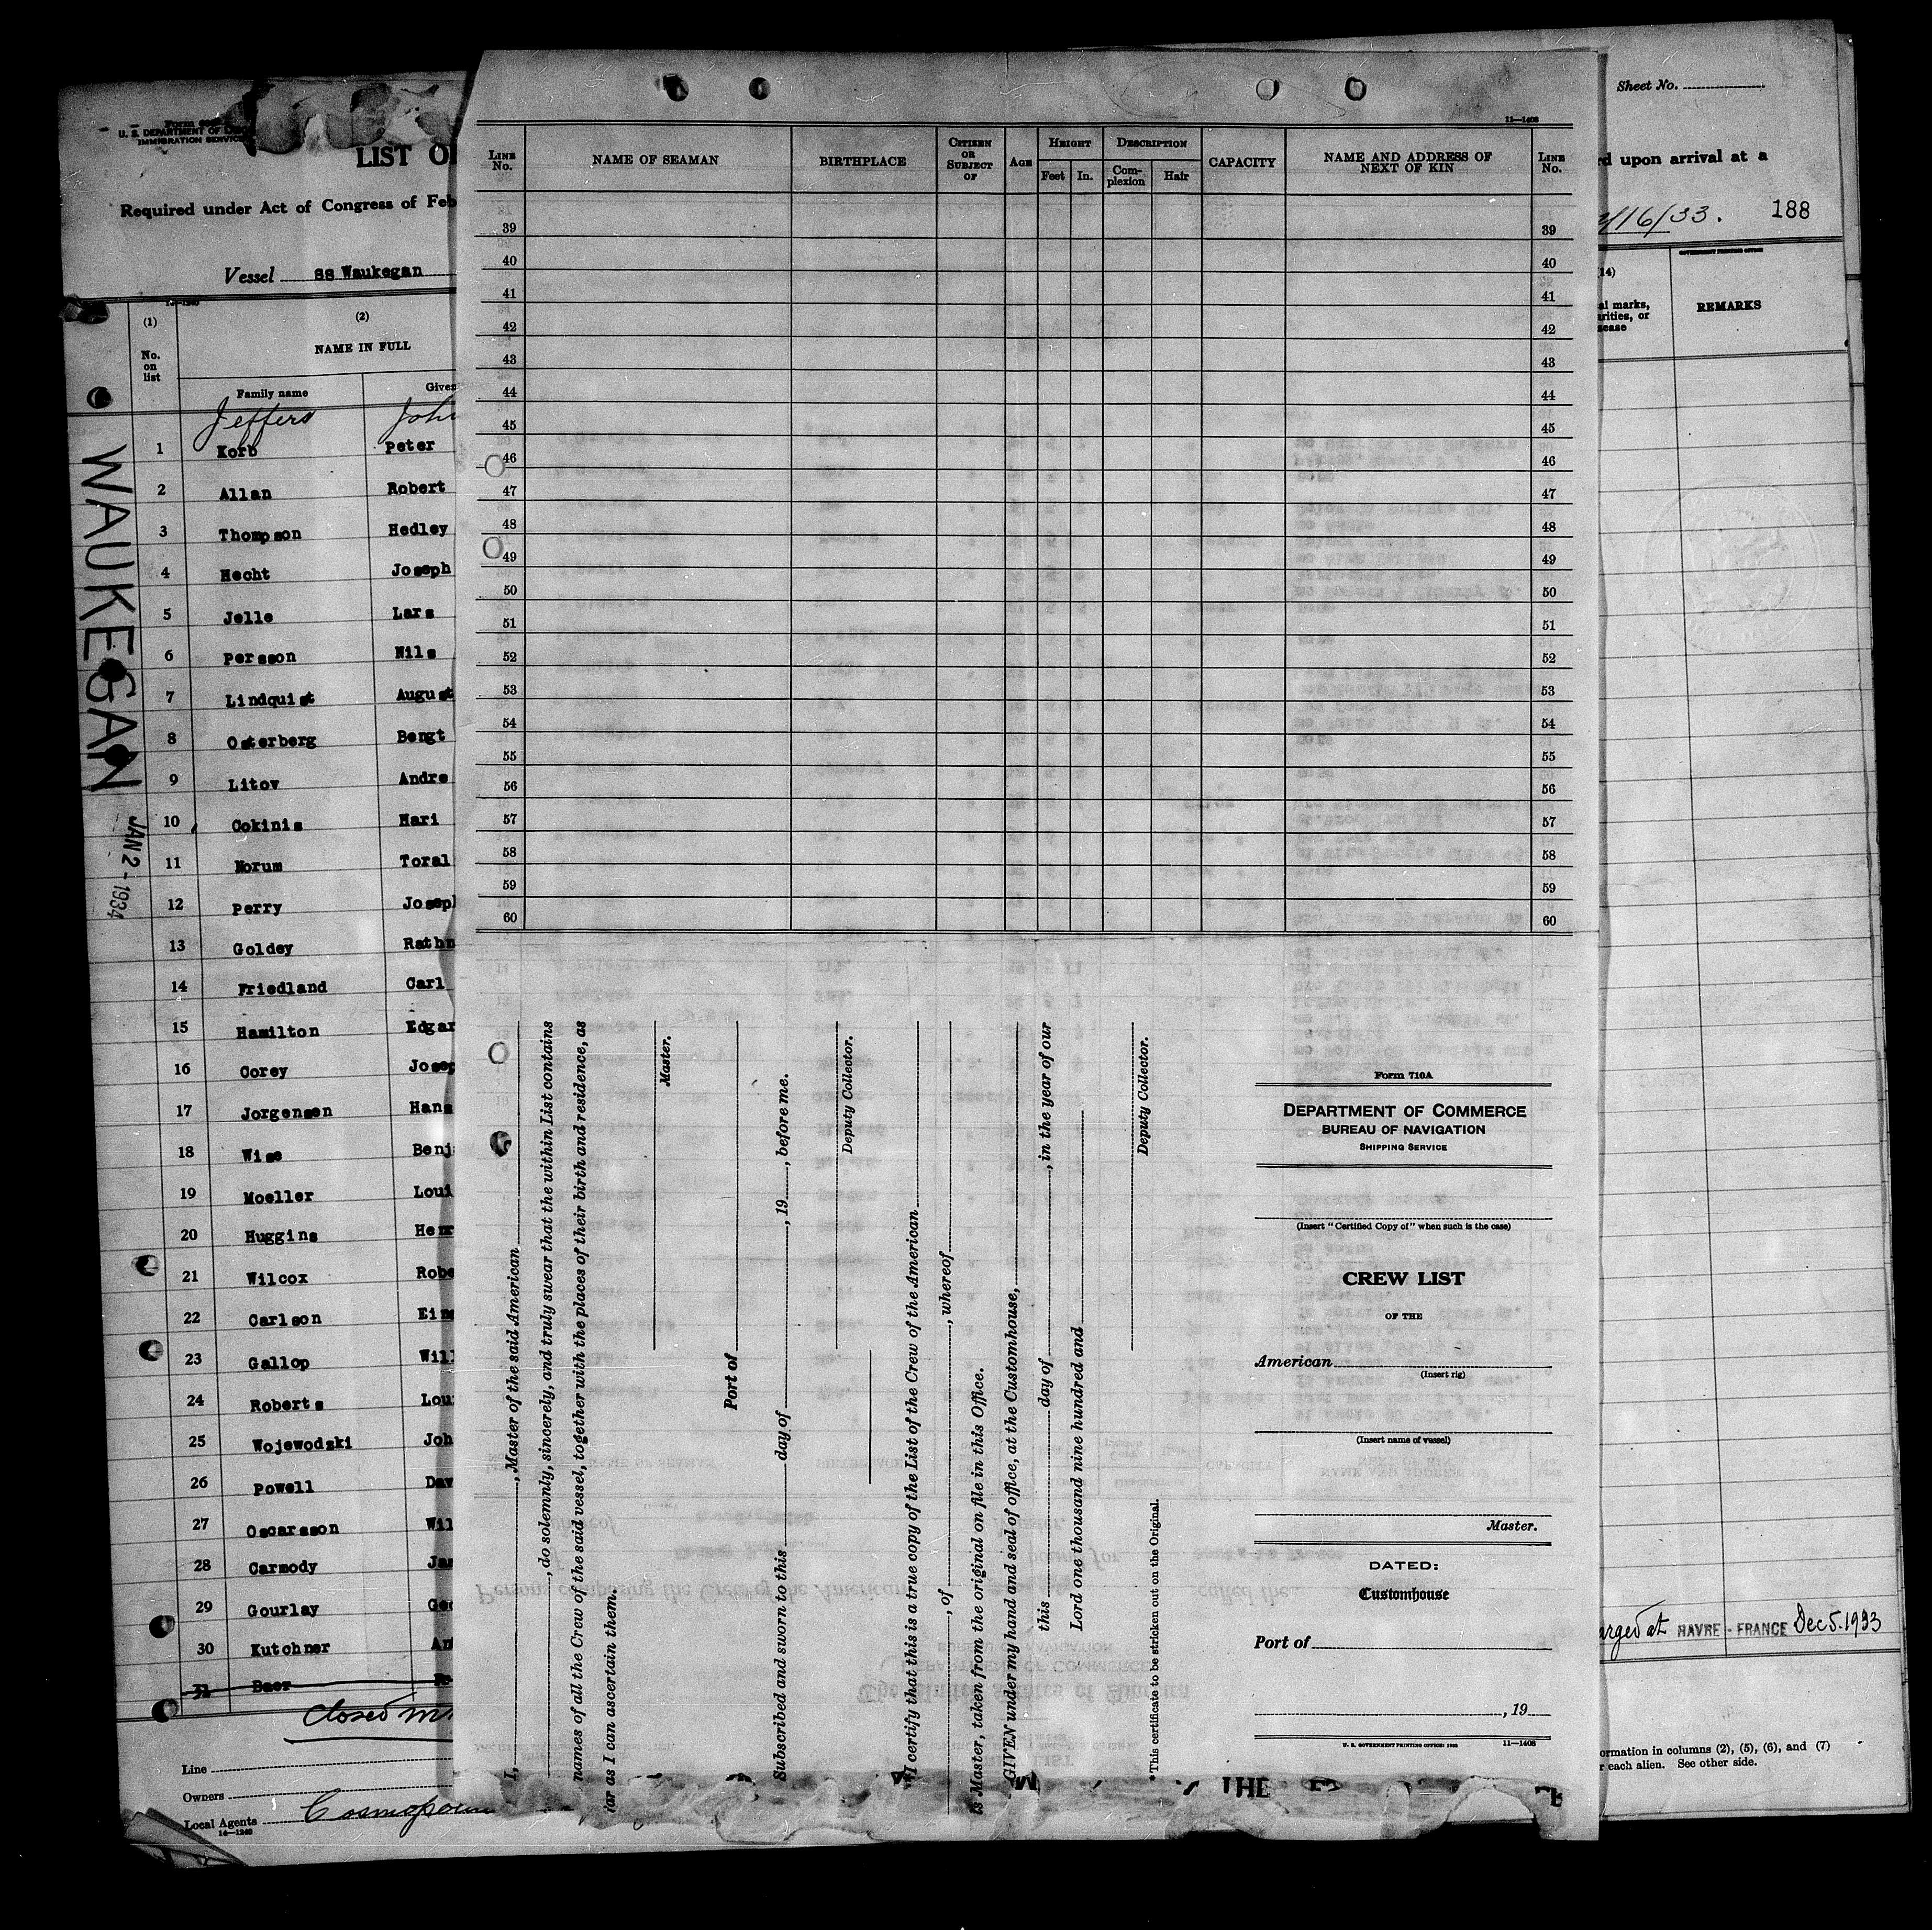 Form
U. S. DEPARTMENT OF
IMMIGRATION SERVICE
LIST OF
Required under Act of Congress of Feb
Vessel SS Waukegan
14-1240
(1) (2)
No. on list
NAME IN FULL
Family name Given
Jeffers John
1 Korb Peter
2 Allan Robert
3 Thompson Hedley
4 Hecht Joseph
5 Jelle Lars
6 Persson Nils
7 Lindquist August
8 Osterberg Bengt
9 Litov Andre
10 Cokinis Hari
11 Norum Toral
12 Perry Joseph
13 Goldey Rathm
14 Friedland Carl
15 Hamilton Edgar
16 Corey Josep
17 Jorgensen Hans
18 Wise Benj
19 Moeller Loui
20 Huggins Henr
21 Wilcox Robe
22 Carlson Eina
23 Gallop Will
24 Roberts Lou
25 Wojewodski Joh
26 Powell Dav
27 Oscarsson Wil
28 Carmody Jas
29 Gourlay Geo
30 Kutchner An
31 Baer
Closed
Line
Owners
Local Agents Cosmopo
14-1240
WAUKEGAN
JAN 2 - 1934
11-1408
LINE No. NAME OF SEAMAN BIRTHPLACE CITIZEN OR SUBJECT OF AGE HEIGHT DESCRIPTION CAPACITY NAME AND ADDRESS OF NEXT OF KIN LINE No.
Feet In. Complexion Hair
39 39
40 40
41 41
42 42
43 43
44 44
45 45
46 46
47 47
48 48
49 49
50 50
51 51
52 52
53 53
54 54
55 55
56 56
57 57
58 58
59 59
60 60
I, , Master of the said American
, do solemnly, sincerely, and truly swear that the within List contains
names of all the Crew of the said vessel, together with the places of their birth and residence, as
far as I can ascertain them.
Master.
Port of
Subscribed and sworn to this day of , 19 , before me.
Deputy Collector.
*I certify that this is a true copy of the List of the Crew of the American
, of , whereof
is Master, taken from the original on file in this Office.
GIVEN under my hand and seal of office, at the Customhouse,
this day of , in the year of our
Lord one thousand nine hundred and
Deputy Collector.
*This certificate to be stricken out on the Original.
Form 710A
DEPARTMENT OF COMMERCE
BUREAU OF NAVIGATION
SHIPPING SERVICE
(Insert "Certified Copy of" when such is the case)
CREW LIST
OF THE
American
(Insert rig)
(Insert name of vessel)
Master.
DATED:
Customhouse
Port of
, 19
U. S. GOVERNMENT PRINTING OFFICE: 11-1408
THE
Sheet No.
rd upon arrival at a
/16/33. 188
GOVERNMENT PRINTING OFFICE
(14)
al marks,
arities, or
sease
REMARKS
arged at HAVRE - FRANCE Dec 5. 1933
ormation in columns (2), (5), (6), and (7)
r each alien. See other side.